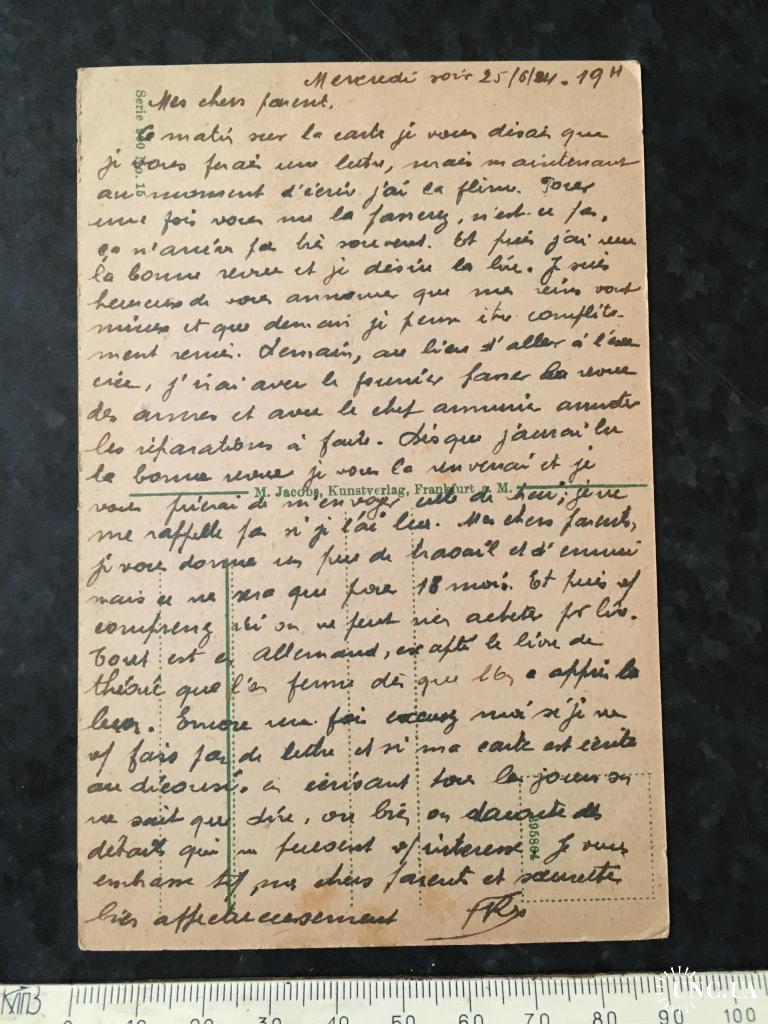 Mercredi soir 25/6/24. 19H
Mes chers parent.
Ce matin sur la carte je vous disai que
je vous ferais une lettre, mais maintenant
au moment d'écrire j'ai la flême. Pour
une fois vous me la passerez, n'est-ce pas,
ça n'arrive pas très souvent. Et puis j'ai reçu
la bonne revue et je désire la lire. Je suis
heureux de vous annoncer que mes reins vont
mieux et que demain je peux être complète-
ment remis. Demain, au lieu d'aller à l'exer
cice, j'irai avec le fourrier passer la revue
des armes et avec le chef armurier
les réparations à faire. Dès que j'aurai lu
la bonne revue je vous la renverrai et je
M. Jacobs, Kunstverlag, Frankfurt a. M.
vous prierai de m'envoyer celle de je ne
me rappelle pas si je l'ai lue. Mes chers parents,
je vous donne un peu de travail et d'ennui
mais ce ne sera que pour 18 mois. Et puis v/
comprenez ici on ne peut rien acheter pr lire.
Tout est en allemand, excepté le livre de
théorie que l'on ferme dès que l'on a appris la
leçon. Encore une fois excusez moi si je ne
v/ fais pas de lettre et si ma carte est écrite
au décousu. en écrivant tous les jours on
ne sait que dire, ou bien on raconte des
détails qui ne peuvent v/ interesser. Je vous
embrasse mes chers parents et soeurette
bien affectueusement
Serie 100 No. 15
295864
0 10 20 30 40 50 60 70 80 90 100
UNC.UA